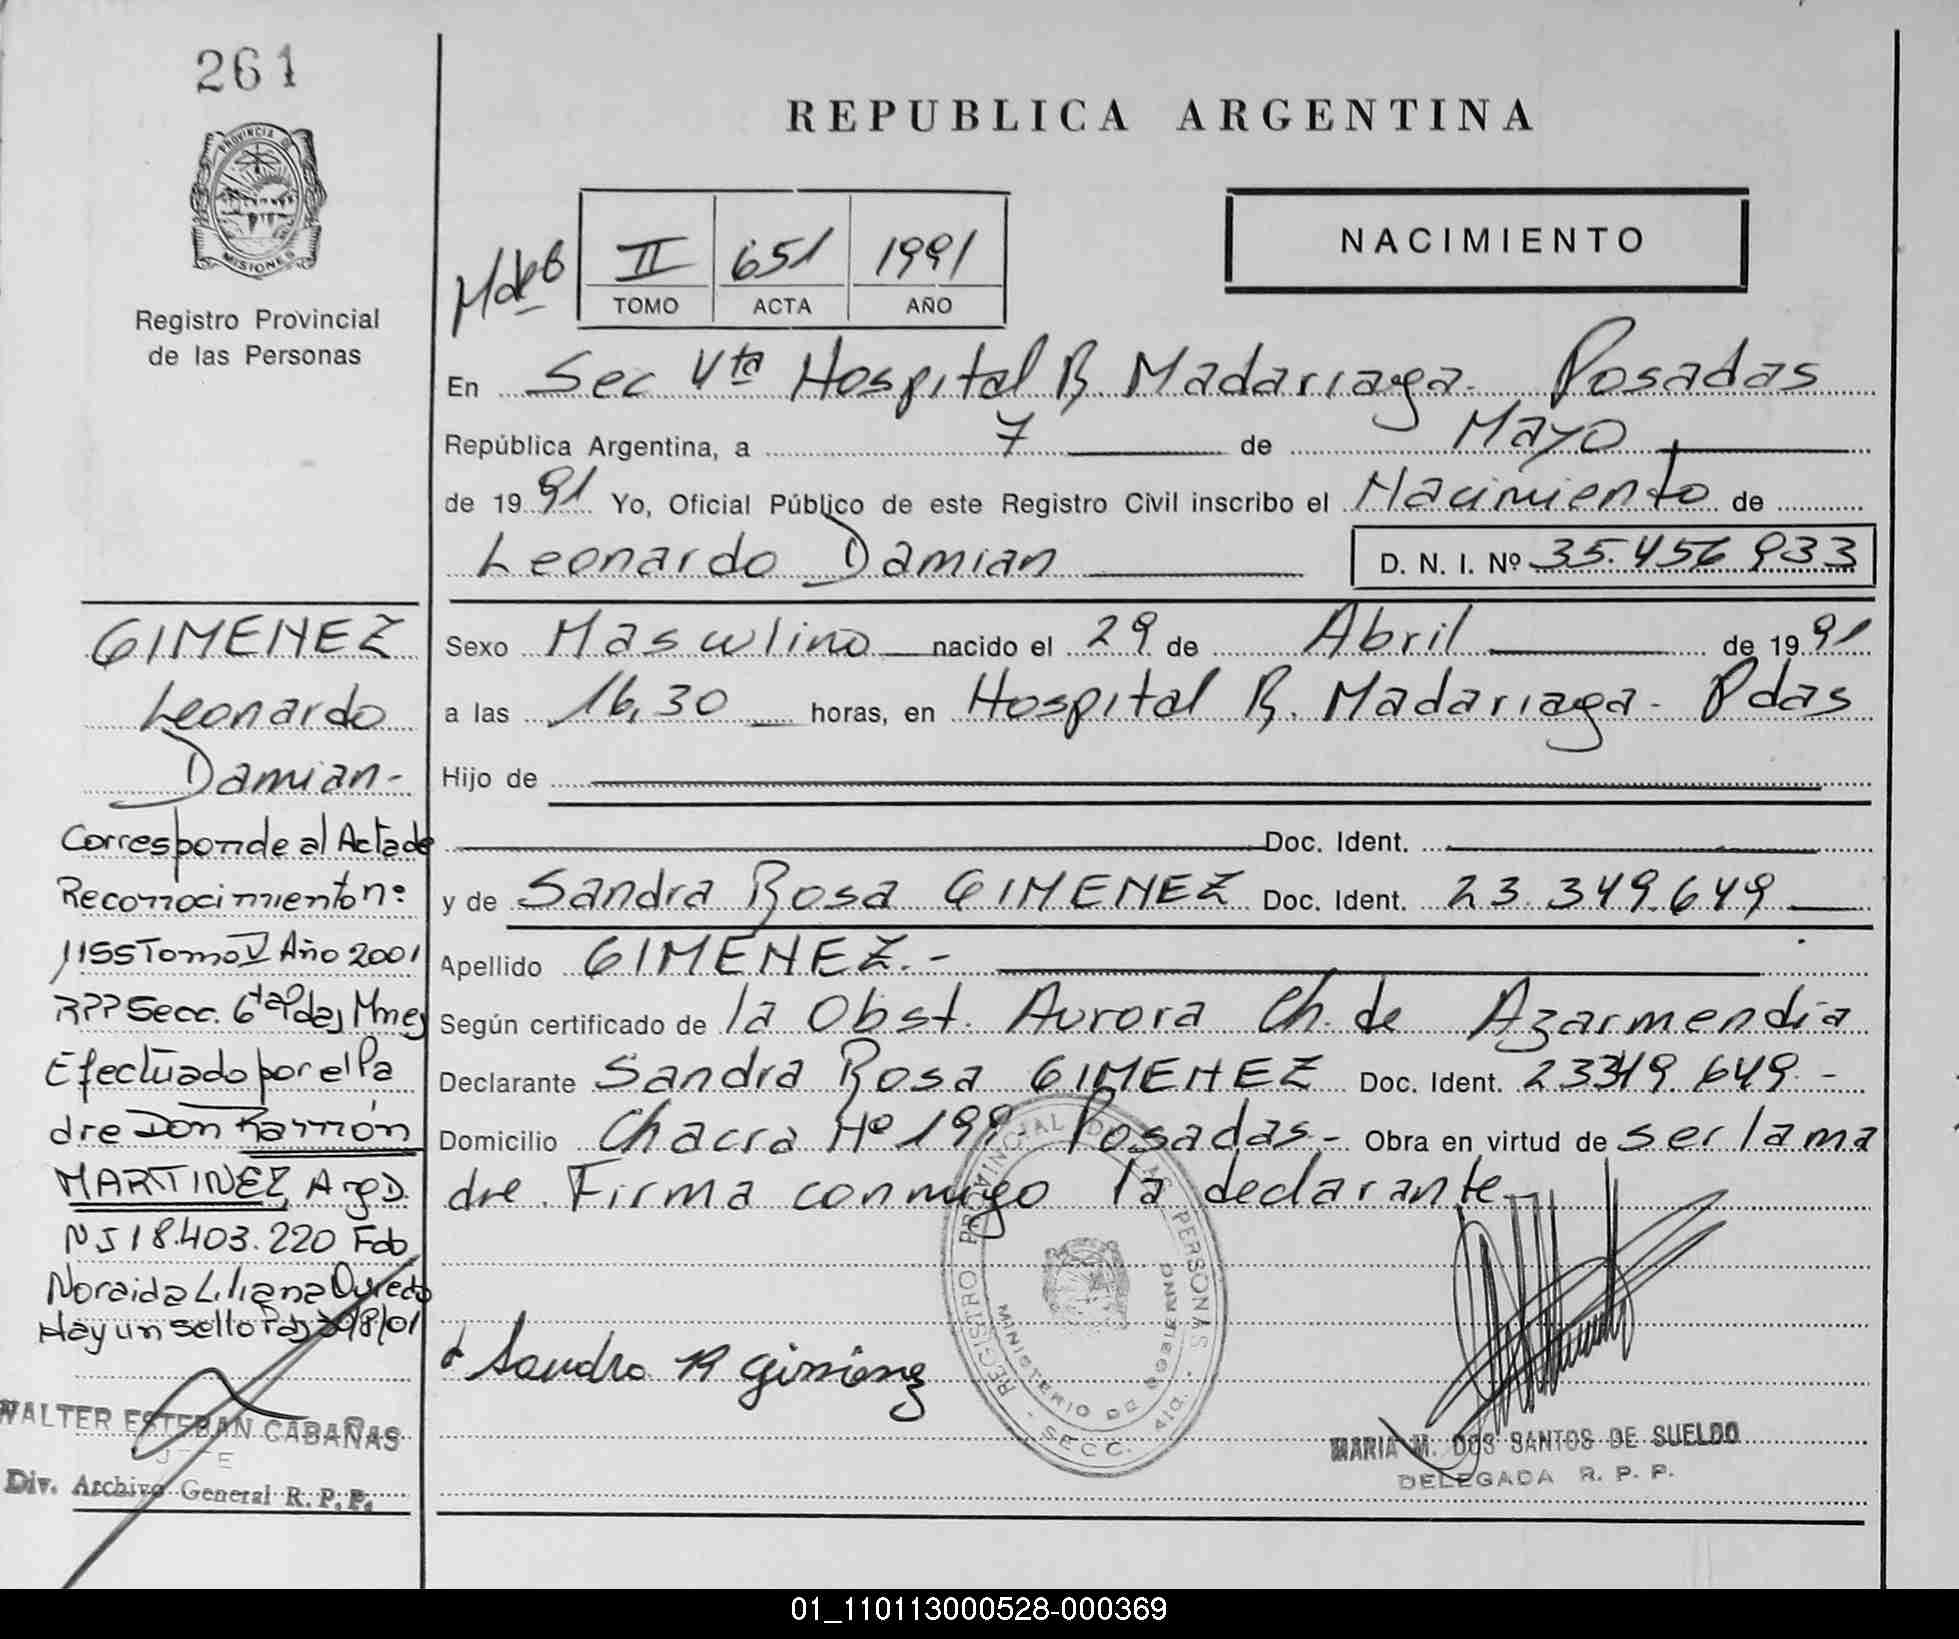 261
PROVINCIA DE
MISIONES
Registro Provincial
de las Personas
REPUBLICA ARGENTINA
NACIMIENTO
II 651 1991
TOMO ACTA AÑO
En Sec 4ta Hospital R. Madariaga. Posadas
República Argentina, a 7 de Mayo
de 1991 Yo, Oficial Público de este Registro Civil inscribo el Nacimiento de
Leonardo Damian D. N. I. Nº 35.456 933
Sexo Masculino nacido el 29 de Abril de 1991
a las 16,30 horas, en Hospital R. Madariaga - Pdas
Hijo de
Doc. Ident.
y de Sandra Rosa GIMENEZ Doc. Ident. 23.349.649
Apellido GIMENEZ.-
Según certificado de la Obst. Aurora Ch. de Azarmendia
Declarante Sandra Rosa GIMENEZ Doc. Ident. 23349.649.-
Domicilio Chacra Nº 199 Posadas.- Obra en virtud de ser la ma
dre. Firma conmigo la declarante
Sandra R Gimenez
REGISTRO PROVINCIAL DE LAS PERSONAS
MINISTERIO DE GOBIERNO
SECC. 4ta.
MARIA M. DOS SANTOS DE SUELDO
DELEGADA R. P. P.
GIMENEZ
Leonardo
Damian-
Corresponde al Acta de
Reconocimiento nº
1155 Tomo V Año 2001
RPP Secc. 6ta Pdas Mnes
Efectuado por el Pa
dre Don Ramón
MARTINEZ, Arg D.
NI 18.403.220 Fdo
Noraida Liliana Oviedo
Hay un sello Pdas /08/01
WALTER ESTEBAN CABAÑAS
JEFE
Div. Archivo General R. P. P.
01_110113000528-000369